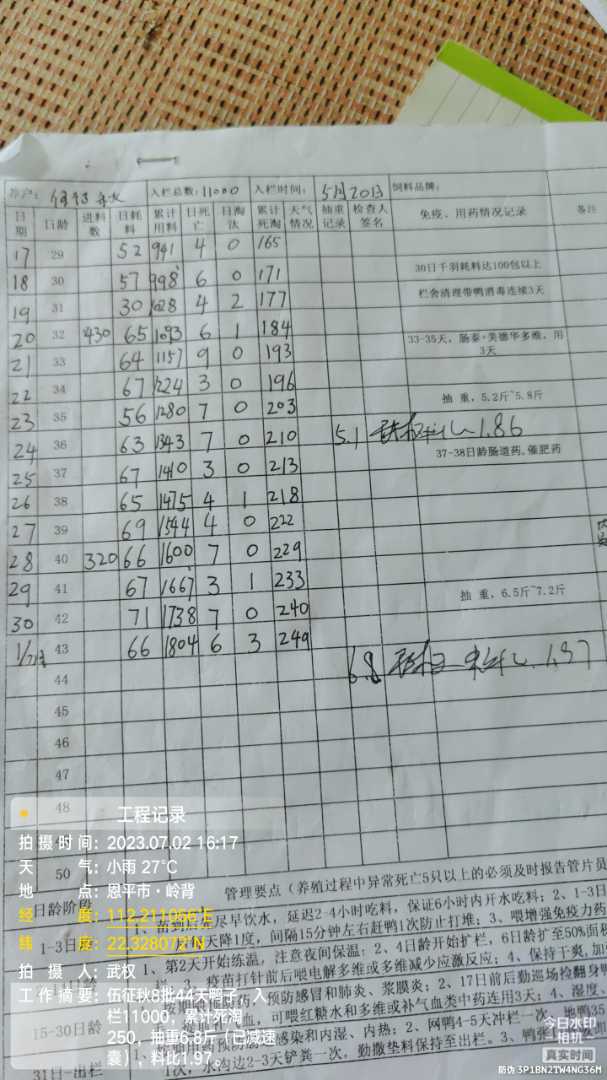 养户: 伍征秋 入栏总数: 11000 入栏时间: 5月20日 饲料品牌:
日期 日龄 进料数 日耗料 累计用料 日死亡 日淘汰 累计死淘 天气情况 抽重记录 检查人签名 免疫、用药情况记录 备注
17 29 52 941 4 0 165
18 30 57 998 6 0 171 30日千羽耗料达100包以上
19 31 30 1028 4 2 177 栏舍清理带鸭消毒连续3天
20 32 430 65 1093 6 1 184
21 33 64 1157 9 0 193 33-35天,肠泰+美德华多维,用3天
22 34 67 1224 3 0 196
23 35 56 1280 7 0 203 抽 重,5.2斤~5.8斤
24 36 63 1343 7 0 210 5.1 1.86
25 37 67 1410 3 0 213 37-38日龄肠道药,催肥药
26 38 65 1475 4 1 218
27 39 69 1544 4 0 222
28 40 320 66 1600 7 0 229
29 41 67 1667 3 1 233 抽 重,6.5斤~7.2斤
30 42 71 1738 7 0 240
1/7 43 66 1804 6 3 249
44 6.8 1.97
45
46
47
48
50
管理要点(养殖过程中异常死亡5只以上的必须及时报告管片员
日龄阶段
尽早饮水,延迟2-4小时吃料,保证6小时内开水吃料;2、1-3日
1-3日 天降1度,间隔15分钟左右赶鸭1次防止打堆;3、喂增强免疫力药
1、第2天开始练温,注意夜间保温;2、4日龄开始扩栏,6日龄扩至50%面积
疫苗打针前后喂电解多维或多维减少应激反应;4、保持干爽,加
预防感冒和肺炎、浆膜炎;2、17日前后勤巡场捡翻身鸭
15-30日龄 可喂红糖水和多维或补气血类中药连用3天;4、湿度、
感染和内湿、内热;2、网鸭4-5天冲栏一次,地鸭35
31日-出栏 1次,水沟达2-3天铲粪一次,勤撒垫料保持至出栏。3、鸭
工程记录
拍摄时间: 2023.07.02 16:17
天 气: 小雨 27℃
地 点: 恩平市·岭背
经 度: 112.211066°E
纬 度: 22.328072°N
拍 摄 人: 武权
工作摘要: 伍征秋8批44天鸭子,入
栏11000,累计死淘
250,抽重6.8斤(已减速
囊),料比1.97。
今日水印
相机
真实时间
防伪 3P1BN2TW4NG36M